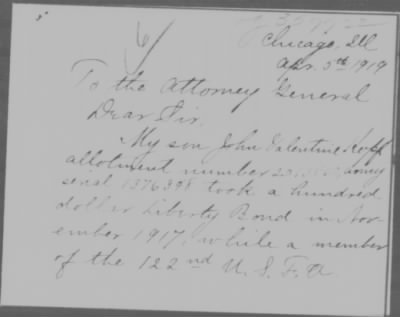 Chicago, Ill
Apr. 5th 1919
To the Attorney General
Dear Sir.
My son John Valentine
allotment number army
serial 1376398 took a hundred
dollar Liberty Bond in Nov-
ember 1917, while a member
of the 122nd U.S.F.A.